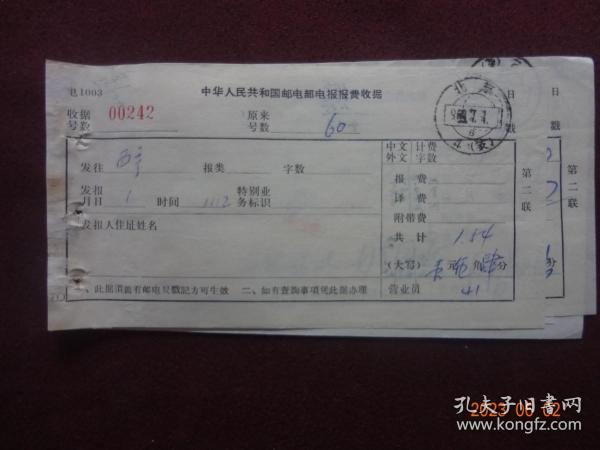 电1003
中华人民共和国邮电部电报报费收据
收据号数 00242
原来号数 60
北京
日戳
日戳
中文 计费
外文 字数
发往 报类 字数
报费
发报月日 1 时间 1112 特别业务标识
译费
附带费
发报人住址姓名
共计 1.54
(大写) 元 角 分
第二联
第二联
一、此据须盖有邮电日戳记方可生效 二、如有查询事项凭此据办理
营业员 41
2023 05 02
孔夫子旧书网
www.kongfz.com